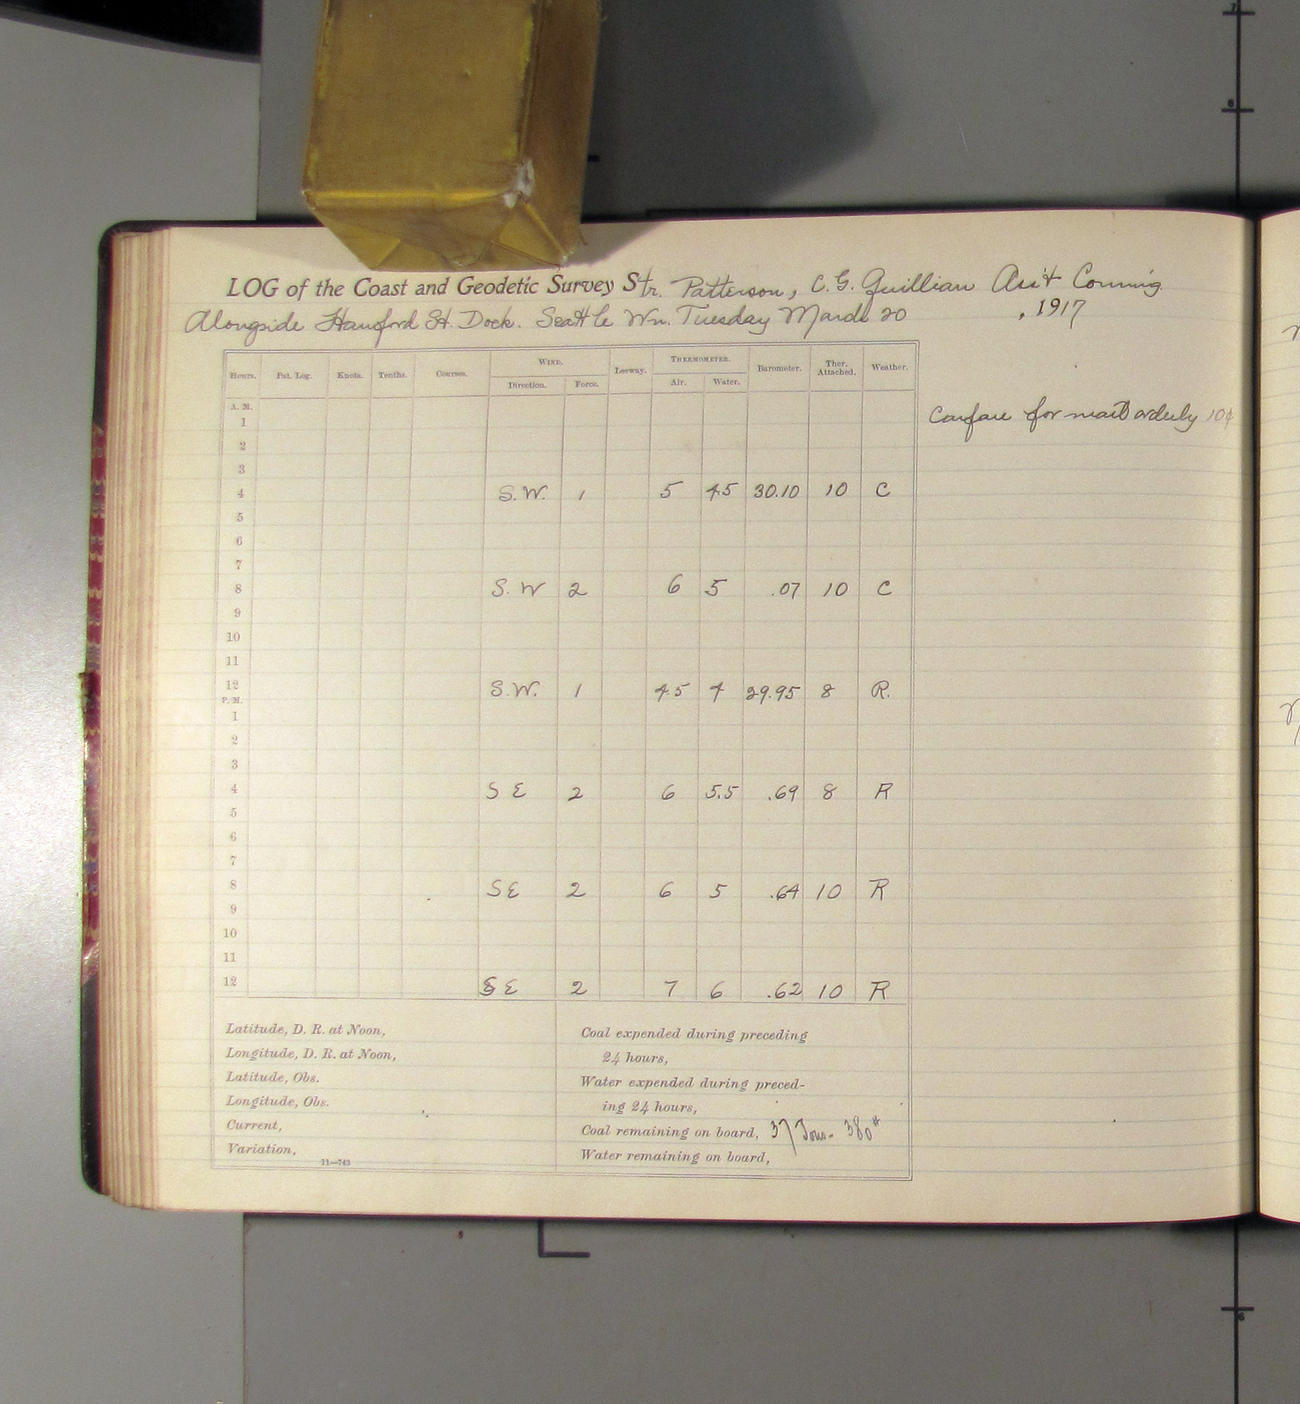 LOG of the Coast and Geodetic Survey Str. Patterson, C. G. Quillian Ass't Comm'g
Alongside Hanford St. Dock. Seattle Wn. Tuesday March 20, 1917
Hours. Pat. Log. Knots. Tenths. Courses. WIND. Leeway. THERMOMETER. Barometer. Ther. Attached. Weather.
Direction. Force. Air. Water.
A. M.
1 Carfare for mail orderly 10¢
2
3
4 S.W. 1 5 4.5 30.10 10 C
5
6
7
8 S.W 2 6 5 .07 10 C
9
10
11
12 S.W. 1 4.5 4 29.95 8 R.
P. M.
1
2
3
4 S E 2 6 5.5 .69 8 R
5
6
7
8 S E 2 6 5 .64 10 R
9
10
11
12 S E 2 7 6 .62 10 R
Latitude, D. R. at Noon,
Longitude, D. R. at Noon,
Latitude, Obs.
Longitude, Obs.
Current,
Variation,
11—743
Coal expended during preceding
24 hours,
Water expended during preced-
ing 24 hours,
Coal remaining on board, 37 Tons - 380#
Water remaining on board,